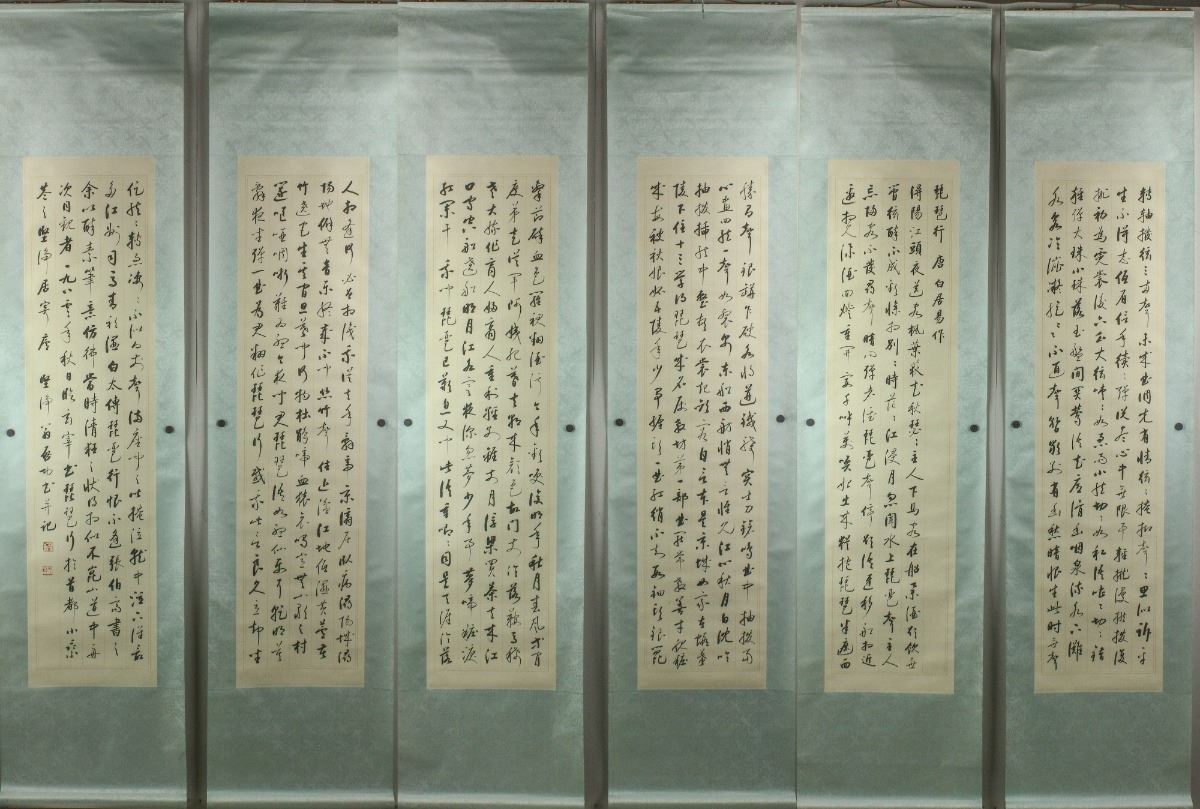 琵琶行 唐 白居易作
潯陽江頭夜送客楓葉荻花秋瑟瑟主人下馬客在船舉酒欲飲無
管絃醉不成歡慘將別別時茫茫江浸月忽聞水上琵琶聲主人
忘歸客不發尋聲暗問彈者誰琵琶聲停欲語遲移船相近
邀相見添酒回燈重開宴千呼萬喚始出來猶抱琵琶半遮面
轉軸撥絃三兩聲未成曲調先有情絃絃掩抑聲聲思似訴平
生不得志低眉信手續續彈說盡心中無限事輕攏慢撚撥復
挑初為霓裳後六幺大絃嘈嘈如急雨小絃切切如私語嘈嘈切切錯
雜彈大珠小珠落玉盤間關鶯語花底滑幽咽泉流水下灘
水泉冷澀絃凝絕凝絕不通聲暫歇別有幽愁暗恨生此時無聲
勝有聲銀瓶乍破水漿迸鐵騎突出刀鎗鳴曲終抽撥當
心畫四絃一聲如裂帛東船西舫悄無言唯見江心秋月白沈吟
抽撥插絃中整頓衣裳起斂容自言本是京城女家在蝦蟆
陵下住十三學得琵琶成名屬教坊第一部曲罷常教善才伏妝
成每被秋娘妬五陵年少爭纏頭一曲紅綃不知數鈿頭銀篦
擊節碎血色羅裙翻酒污今年歡笑復明年秋月春風等閒
度弟走從軍阿姨死暮去朝來顏色故門前冷落鞍馬稀
老大嫁作商人婦商人重利輕別離前月浮梁買茶去去來江
口守空船遶船明月江水寒夜深忽夢少年事夢啼妝淚
紅闌干我聞琵琶已歎息又聞此語重唧唧同是天涯淪落
人相逢何必曾相識我從去年辭帝京謫居臥病潯陽城潯
陽地僻無音樂終歲不聞絲竹聲住近湓江地低濕黃蘆苦
竹遶宅生其間旦暮聞何物杜鵑啼血猿哀鳴豈無山歌與村
笛嘔啞嘲哳難為聽今夜聞君琵琶語如聽仙樂耳暫明莫
辭更坐彈一曲為君翻作琵琶行感我此言良久立却坐
促絃絃轉急淒淒不似向前聲滿座重聞皆掩泣就中泣下誰最
多江州司馬青衫濕白太傅琵琶行恨不逢張伯高書之
余以醉素筆意仿彿當時清狂之狀得相似不崑山道中
觀者一九八零年秋日書琵琶行於首都小乘
巷之堅淨居寓廬堅淨翁啟功書并記